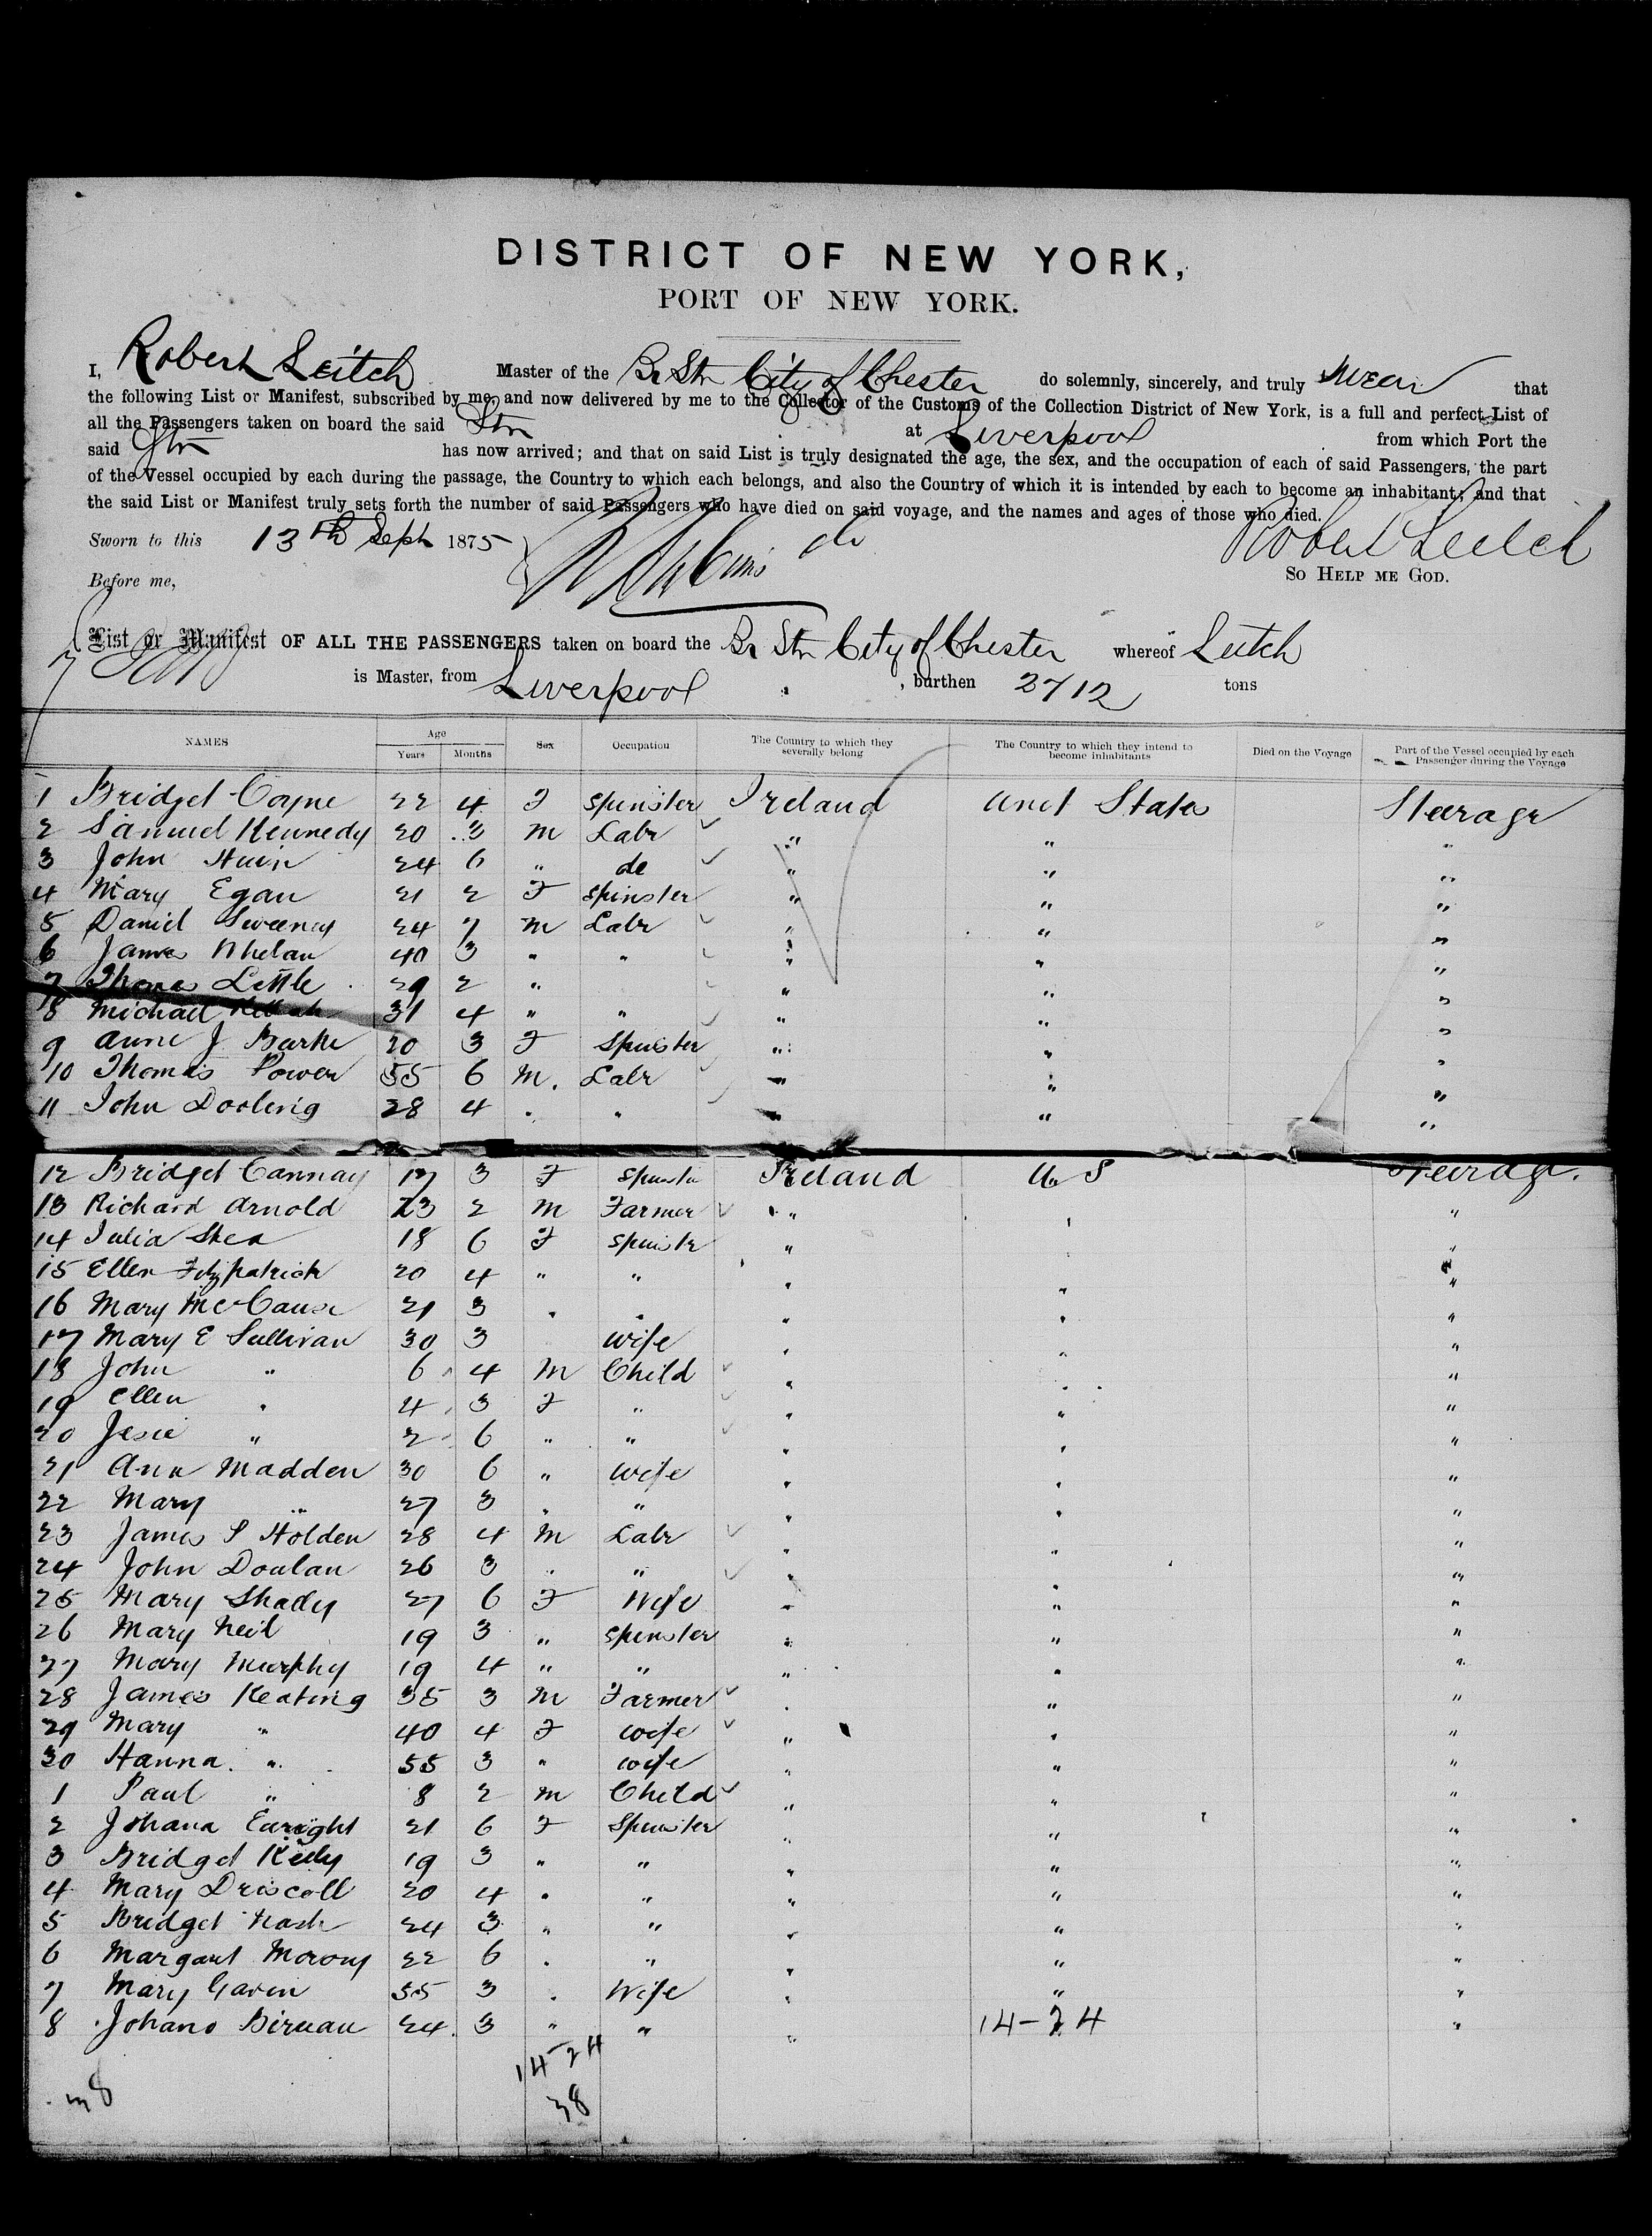 DISTRICT OF NEW YORK,
PORT OF NEW YORK.
I, Robert Leitch Master of the Br Str City of Chester do solemnly, sincerely, and truly swear that
the following List or Manifest, subscribed by me, and now delivered by me to the Collector of the Customs of the Collection District of New York, is a full and perfect List of
all the Passengers taken on board the said Str at Liverpool from which Port the
said Str has now arrived; and that on said List is truly designated the age, the sex, and the occupation of each of said Passengers, the part
of the Vessel occupied by each during the passage, the Country to which each belongs, and also the Country of which it is intended by each to become an inhabitant; and that
the said List or Manifest truly sets forth the number of said Passengers who have died on said voyage, and the names and ages of those who died.
Sworn to this 13th Sept 1875 Robert Leitch
Before me, SO HELP ME GOD.
List or Manifest OF ALL THE PASSENGERS taken on board the Br Str City of Chester whereof Leitch
is Master, from Liverpool , burthen 2712 tons
NAMES Age Years Months Sex Occupation The Country to which they severally belong The Country to which they intend to become inhabitants Died on the Voyage Part of the Vessel occupied by each Passenger during the Voyage
1 Bridget Coyne 22 4 F Spinster Ireland Unit States Steerage
2 Samuel Kennedy 20 3 M Labr " " "
3 John 24 6 " do " " "
4 Mary Egan 21 2 F Spinster " " "
5 Daniel Sweeney 24 7 M Labr " " "
6 James Whelan 40 3 " " " " "
7 Thomas Little 29 2 " " " "
8 Michael 31 4 " " " " "
9 Anne J Burke 20 3 F Spinster " " "
10 Thomas Power 55 6 M. Labr " " "
11 John Dooling 28 4 " " " " "
12 Bridget Cannay 17 3 F Spinstr Ireland U S Steerage.
13 Richard Arnold 23 2 M Farmer " " "
14 Julia Shea 18 6 F Spinstr " "
15 Ellen Fitzpatrick 20 4 " " " " "
16 Mary 21 3 " " " " "
17 Mary E Sullivan 30 3 Wife " " "
18 John " 6 4 M Child " " "
19 Ellen " 4 3 F " " " "
20 Jesie " 2 6 " " " " "
21 Ann Madden 30 6 " Wife " " "
22 Mary " 27 3 " " " " "
23 James S Holden 28 4 M Labr " " "
24 John Doulan 26 3 " " " " "
25 Mary Shady 27 6 F Wife " " "
26 Mary Neil 19 3 " Spinster " " "
27 Mary Murphy 19 4 " " " " "
28 James Keating 35 3 M Farmer " " "
29 Mary " 40 4 F Wife " " "
30 Hanna " 55 3 " Wife " " "
1 Paul " 8 2 M Child " " "
2 Johana Enright 21 6 F Spinster " " "
3 Bridget Kiely 19 3 " " " " "
4 Mary Driscoll 20 4 " " " " "
5 Bridget Nash 24 3 " " " " "
6 Margaret Morony 22 6 " " " " "
7 Mary Gavin 35 3 " Wife " " "
8 Johano 24 3 " " " 14-24 "
14-24
38 38